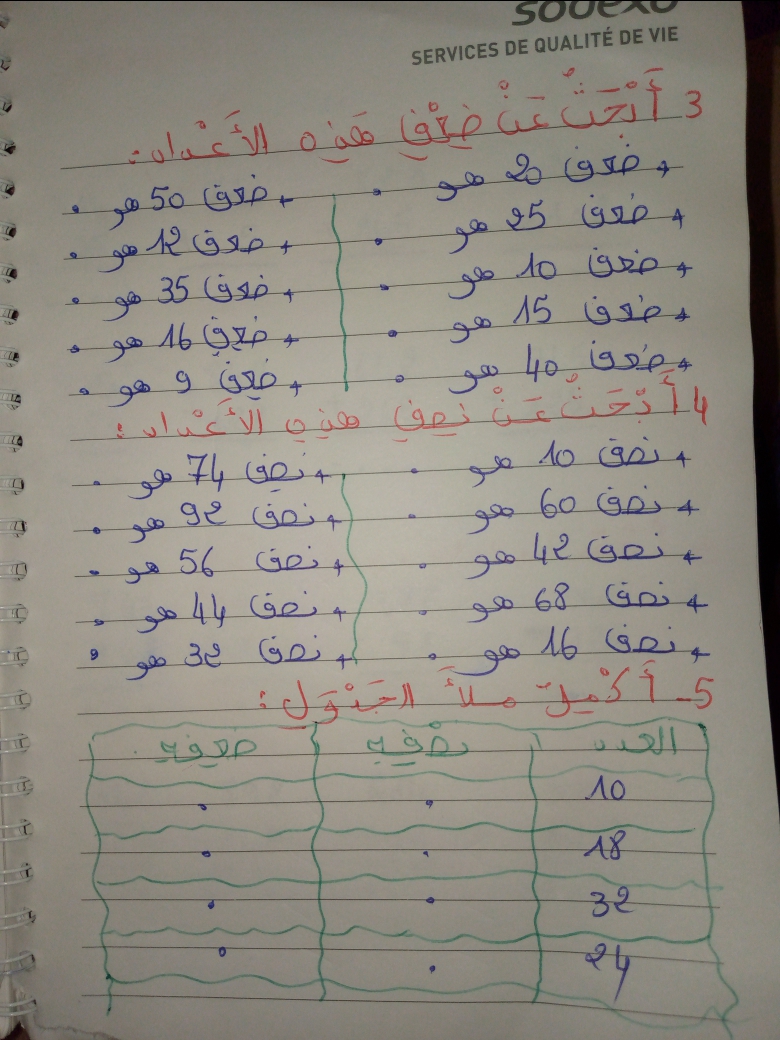 sodexo
SERVICES DE QUALITÉ DE VIE
3 أَبْحَثُ عَنْ ضِعْفِ هَذِهِ الأَعْداد:
+ ضعف 20 هو . + ضعف 50 هو .
+ ضعف 25 هو . + ضعف 12 هو .
+ ضعف 10 هو . + ضعف 35 هو .
+ ضعف 15 هو . + ضعف 16 هو .
+ ضعف 40 هو . + ضعف 9 هو .
4 أَبْحَثُ عَنْ نصف هذه الأَعْداد:
+ نصف 10 هو . + نصف 74 هو .
+ نصف 60 هو . + نصف 92 هو .
+ نصف 42 هو . + نصف 56 هو .
+ نصف 68 هو . + نصف 44 هو .
+ نصف 16 هو . + نصف 32 هو .
5- أَكْمِلُ ملأَ الجَدْوَلِ:
العدد نصْفِه ضعفِه
10 . .
18 . .
32 . .
24 . .